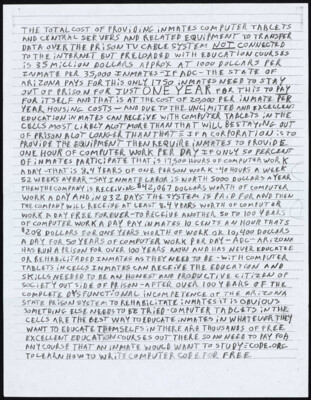 THE TOTAL COST OF PROVIDING INMATES COMPUTER TABLETS
AND CENTRAL SERVERS AND RELATED EQUIPMENT TO TRANSFER
DATA OVER THE PRISON TV CABLE SYSTEM NOT CONNECTED
TO THE INTERNET BUT PRELOADED WITH EDUCATION COURSES
IS 35 MILLION DOLLARS APPROX AT 1000 DOLLARS PER
INMATE PER 35,000 INMATES - IF ADC - THE STATE OF
ARIZONA PAYS FOR THIS ONLY 1750 INMATES NEED TO STAY
OUT OF PRISON FOR JUST ONE YEAR FOR THIS TO PAY
FOR ITSELF AND THAT IS AT THE COST OF 20000 PER INMATE PER
YEAR HOUSING COSTS - AND DUE TO THE UNLIMITED AND EXCELLENT
EDUCATION INMATES CAN RECEIVE WITH COMPUTER TABLETS IN THE
CELLS MOST LIKELY A LOT MORE THAN THAT WILL BE STAYING OUT
OF PRISON A LOT LONGER THAN THAT - IF A CORPORATION IS TO
PROVIDE THE EQUIPMENT THEN REQUIRE INMATES TO PROVIDE
ONE HOUR OF COMPUTER WORK PER DAY IF ONLY 50 PERCENT
OF INMATES PARTICIPATE THAT IS 17500 HOURS OF COMPUTER WORK
A DAY - THAT IS 8.4 YEARS OF ONE PERSON WORK - 40 HOURS A WEEK
52 WEEKS A YEAR - SAY INMATE LABOR IS WORTH 5000 DOLLARS A YEAR
THEN THE COMPANY IS RECEIVING $42,067 DOLLARS WORTH OF COMPUTER
WORK A DAY AND IN 832 DAYS THE SYSTEM IS PAID FOR AND THEN
THE COMPANY WILL RECEIVE AT LEAST 8.4 YEARS WORTH OF COMPUTER
WORK A DAY FREE FOREVER - TO RECEIVE ANOTHER 50 TO 100 YEARS
OF COMPUTER WORK A DAY PAY INMATES 10 CENTS AN HOUR THATS
$208 DOLLARS FOR ONE YEARS WORTH OF WORK OR 10,400 DOLLARS
A DAY FOR 50 YEARS OF COMPUTER WORK PER DAY - ADC - ARIZONA
HAS RUN A PRISON FOR OVER 100 YEARS NOW AND HAS NEVER EDUCATED
OR REHABILITADED INMATES AS THEY NEED TO BE - WITH COMPUTER
TABLETS IN CELLS INMATES CAN RECEIVE THE EDUCATION AND
SKILLS NEEDED TO BE AN HONEST AND PRODUCTIVE CITIZEN OF
SOCIETY OUTSIDE OF PRISON - AFTER OVER 100 YEARS OF THE
COMPLETE DYSFUNCTIONAL INCOMPETENCE OF THE ARIZONA
STATE PRISON SYSTEM TO REHABILITATE INMATES IT IS OBVIOUS
SOMETHING ELSE NEEDS TO BE TRIED - COMPUTER TABLETS IN THE
CELLS ARE THE BEST WAY TO EDUCATE INMATES IN WHATEVER THEY
WANT TO EDUCATE THEMSELFS IN THERE ARE THOUSANDS OF FREE
EXCELLENT EDUCATION COURSES OUT THERE SO NO NEED TO PAY FOR
ANY COURSE THAT AN INMATE WOULD WANT TO STUDY - CODE.ORG
TO LEARN HOW TO WRITE COMPUTER CODE FOR FREE